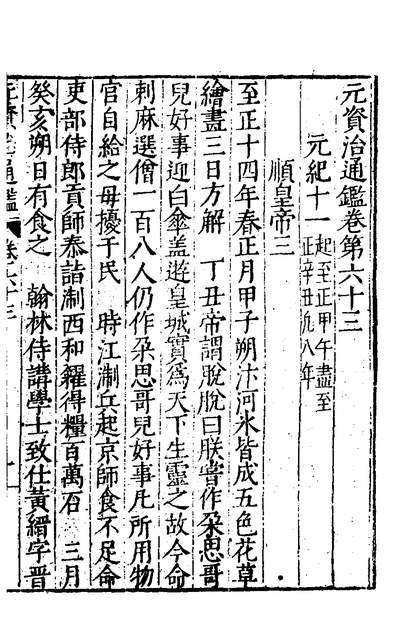 元資治通鑑卷第六十三
元紀十一起至正甲午盡至正辛丑凡八年
順皇帝三
至正十四年春正月甲子朔汴河水皆成五色花草
繪畫三日方解　丁丑帝謂脫脫曰朕嘗作朶思哥
兒好事迎白傘盖遊皇城實為天下生靈之故今命
剌麻選僧一百八人仍作朶思哥兒好事凢所用物
官自給之毋擾于民　時江淛兵起京師食不足命
吏部侍郎貢師泰詣淛西和糴得糧百萬石　三月
癸亥朔日有食之　翰林侍講學士致仕黃縉字晋
元資治通鑑　卷六十三